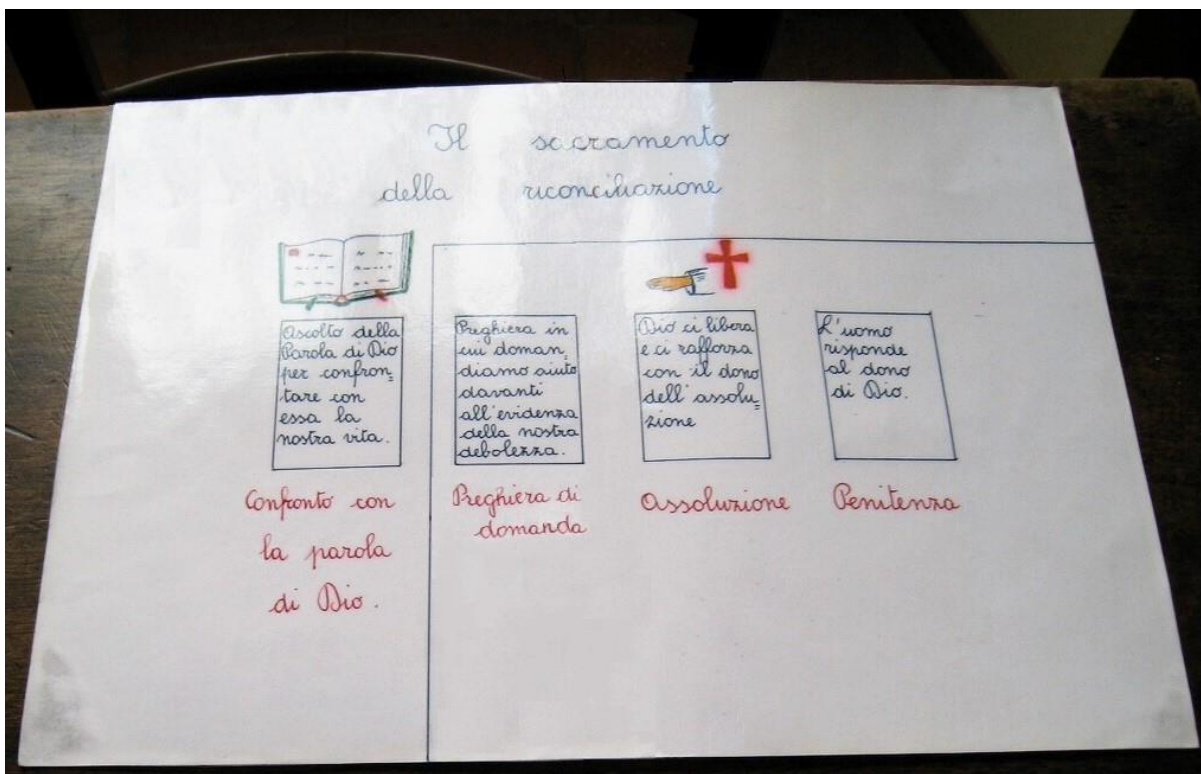 Il sacramento
della riconciliazione
Ascolto della
Parola di Dio
per confron=
tare con
essa la
nostra vita.
Confronto con
la parola
di Dio.
Preghiera in
cui doman=
diamo aiuto
davanti
all'evidenza
della nostra
debolezza.
Preghiera di
domanda
Dio ci libera
e ci rafforza
con il dono
dell'assolu=
zione
Assoluzione
L'uomo
risponde
al dono
di Dio.
Penitenza